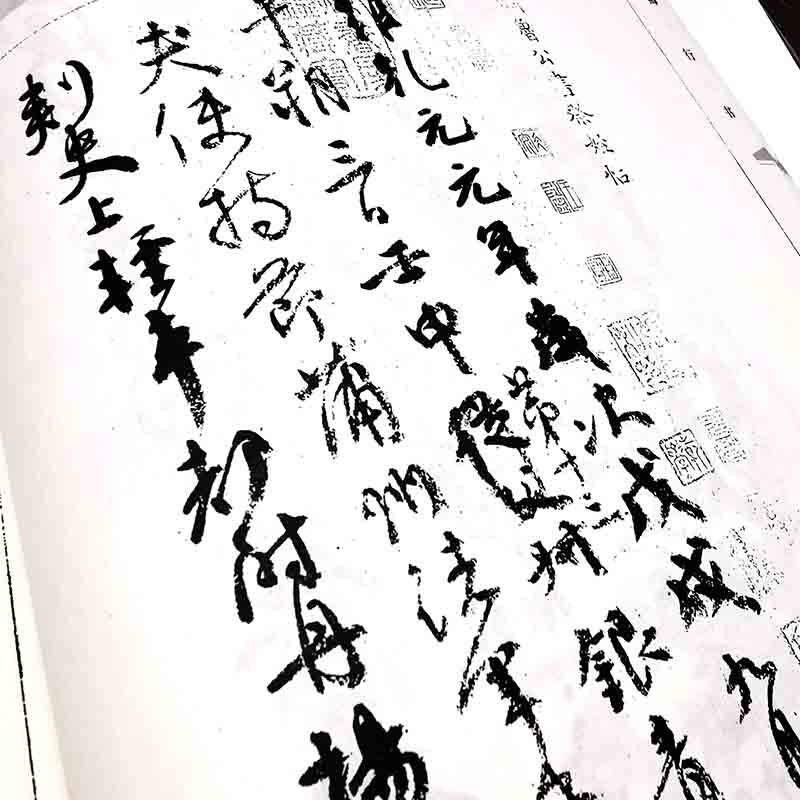 行書
魯公書祭姪帖
維乾元元年歲次戊戌九月
午朔三日壬申從父第十三叔銀青
夫使持節蒲州諸軍事
刺史上輕車都尉丹楊